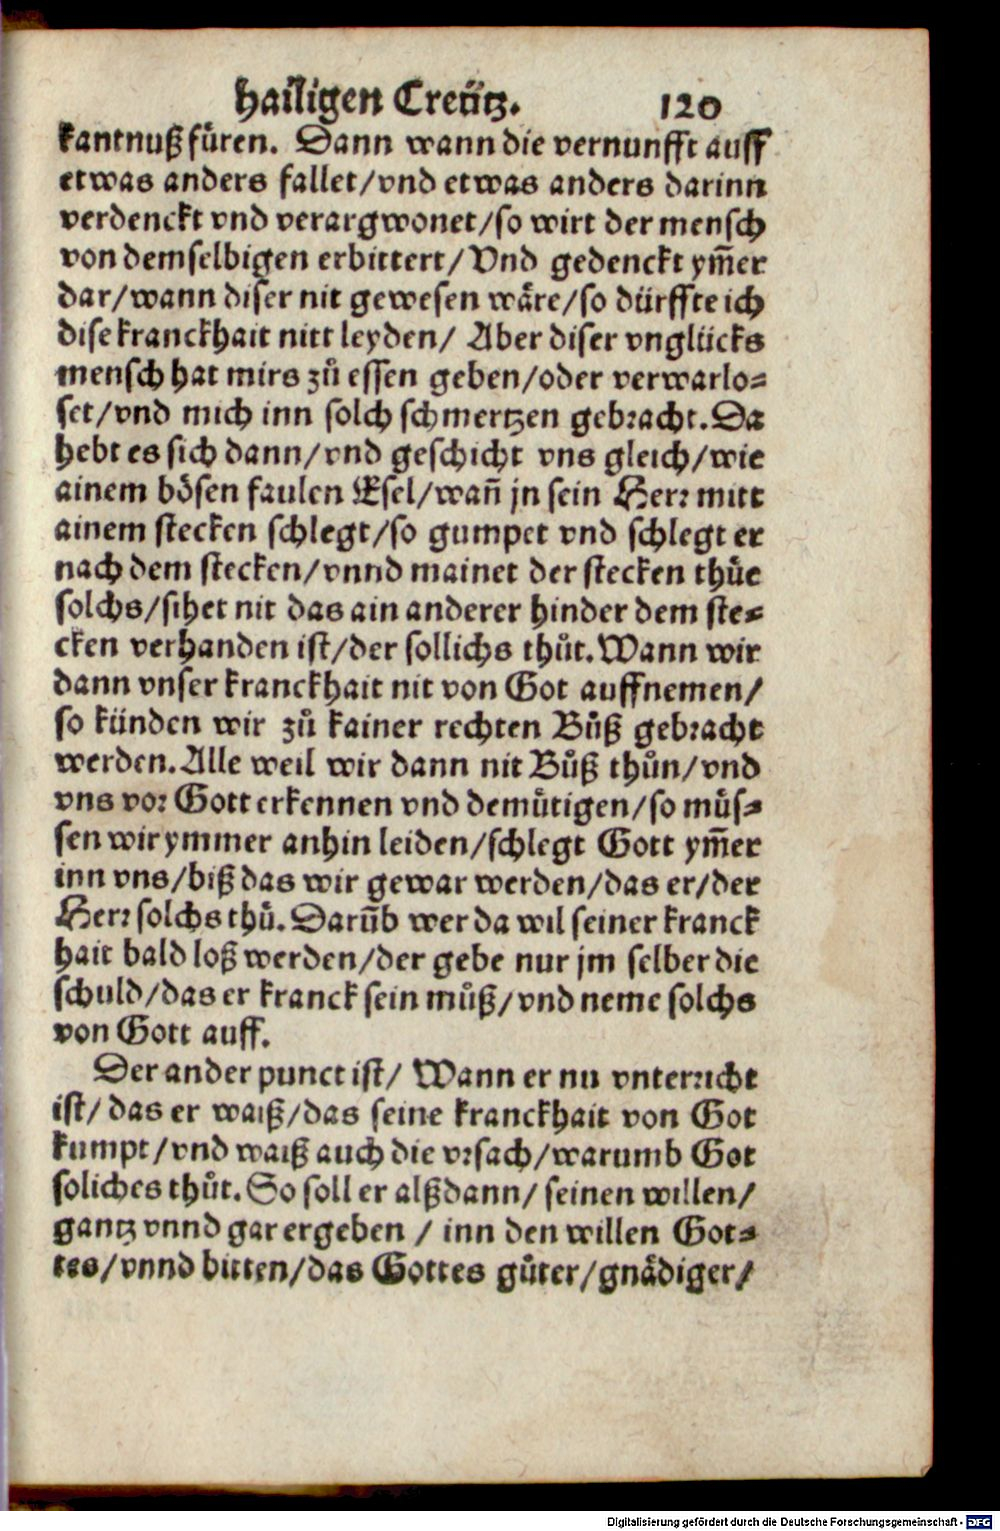 hailigen Creütz. 120
kantnuß fuͤren. Dann wann die vernunfft auff
etwas anders fallet/vnd etwas anders darinn
verdenckt vnd verargwonet/so wirt der mensch
von demselbigen erbittert/ Vnd gedenckt ym̃er
dar/wann diser nit gewesen waͤre/so dürffte ich
dise kranckhait nitt leyden/ Aber diser vnglücks
mensch hat mirs zuͦ essen geben/oder verwarlo⸗
set/vnd mich inn solch schmertzen gebracht. Da
hebt es sich dann/vnd geschicht vns gleich/wie
ainem boͤsen faulen Esel/wañ jn sein Herr mitt
ainem stecken schlegt/so gumpet vnd schlegt er
nach dem stecken/vnnd mainet der stecken thuͤe
solchs/sihet nit das ain anderer hinder dem ste⸗
cken verhanden ist/der sollichs thuͦt. Wann wir
dann vnser kranckhait nit von Got auffnemen/
so künden wir zuͦ kainer rechten Buͦß gebracht
werden. Alle weil wir dann nit Buͦß thuͦn/vnd
vns vor Gott erkennen vnd demuͤtigen/so muͤs⸗
sen wir ymmer anhin leiden/schlegt Gott ym̃er
inn vns/biß das wir gewar werden/das er/der
Herr solchs thuͦ. Darũb wer da wil seiner kranck
hait bald loß werden/der gebe nur jm selber die
schuld/das er kranck sein muͦß/vnd neme solchs
von Gott auff.
Der ander punct ist/ Wann er nu vnterricht
ist/ das er waiß/das seine kranckhait von Got
kumpt/vnd waiß auch die vrsach/warumb Got
soliches thuͦt. So soll er alßdann/ seinen willen/
gantz vnnd gar ergeben / inn den willen Got⸗
tes/vnnd bitten/das Gottes guͤter/gnaͤdiger/
Digitalisierung gefördert durch die Deutsche Forschungsgemeinschaft - DFG